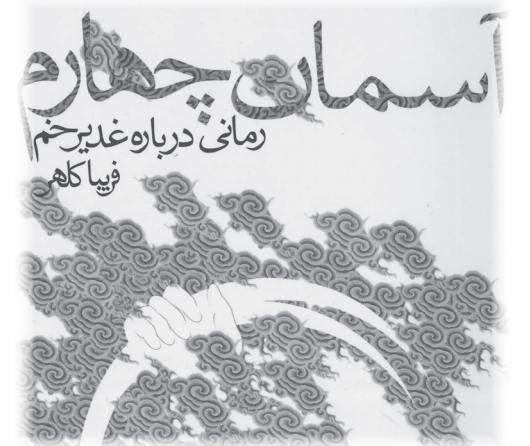 آسمان چهارم
رمانی درباره غدیرخم
فریبا کلهر